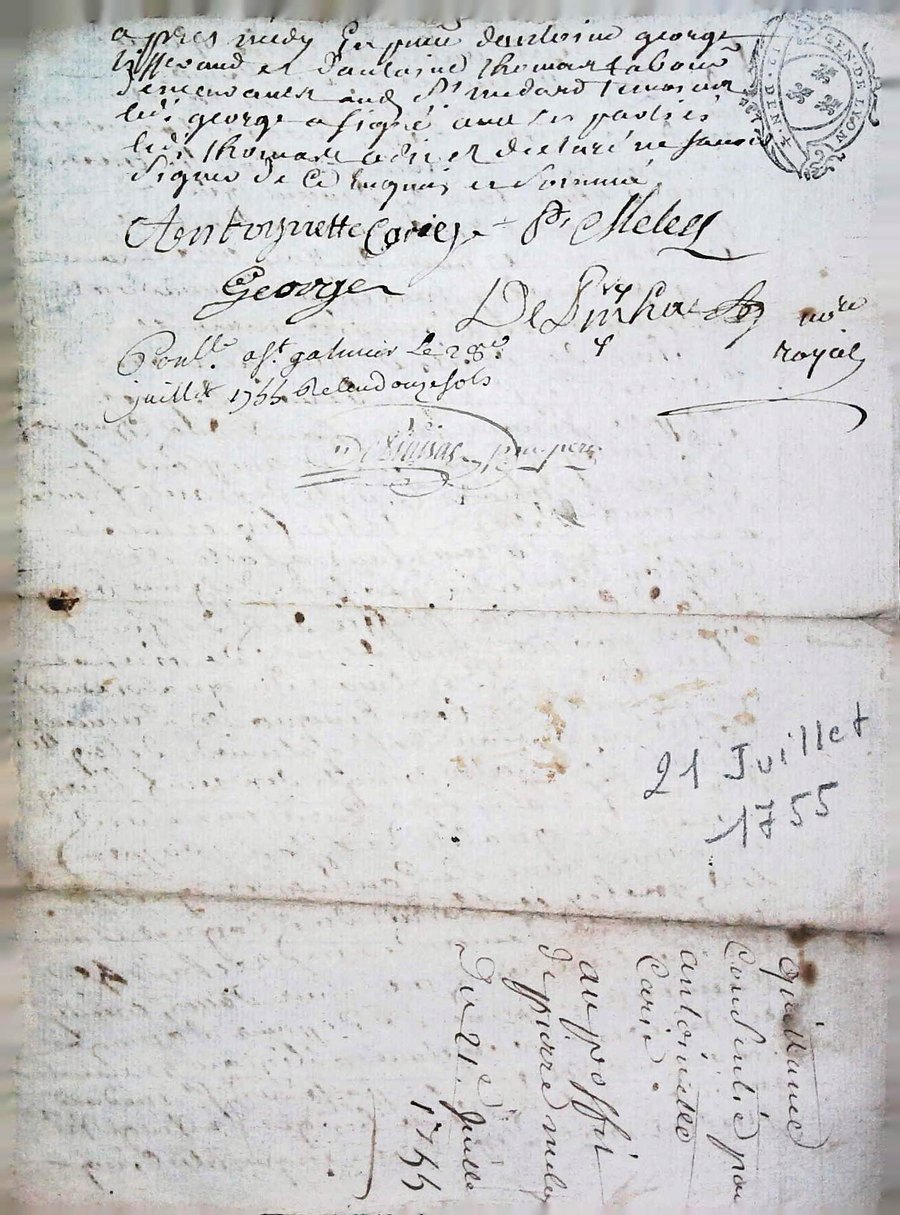 apres midy En presence d'antoine george
tisserand et d'antoine thomas laboureur
demeurants aud. St medard temoins
led. george a signé avec les parties
led. thomas a dit et declaré ne savoir
signer de ce enquis et sommé
Antoynette Carie P. Meley
George
nore
royal
Conllé a St galmier Le 28e
juillet 1755 Receu douze sols
pour pere
GEN. DE LYON
21 Juillet
1755
Quittance
Consentie par
antoinette
Carie
au proffit
de pierre meley
Du 21e Juillet
1755